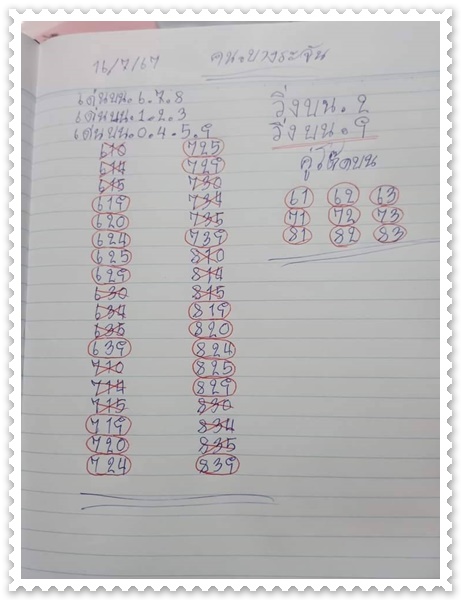 16/7/67 คนบางระจัน
เด่นบน.6.7.8
เด่นบน.1.2.3
เด่นบน.0.4.5.9
วิ่งบน.2
วิ่งบน.9
คู่โต๊ดบน
61 62 63
71 72 73
81 82 83
610 725
614 729
615 730
619 734
620 735
624 739
625 810
629 814
630 815
634 819
635 820
639 824
710 825
714 829
715 830
719 834
720 835
724 839